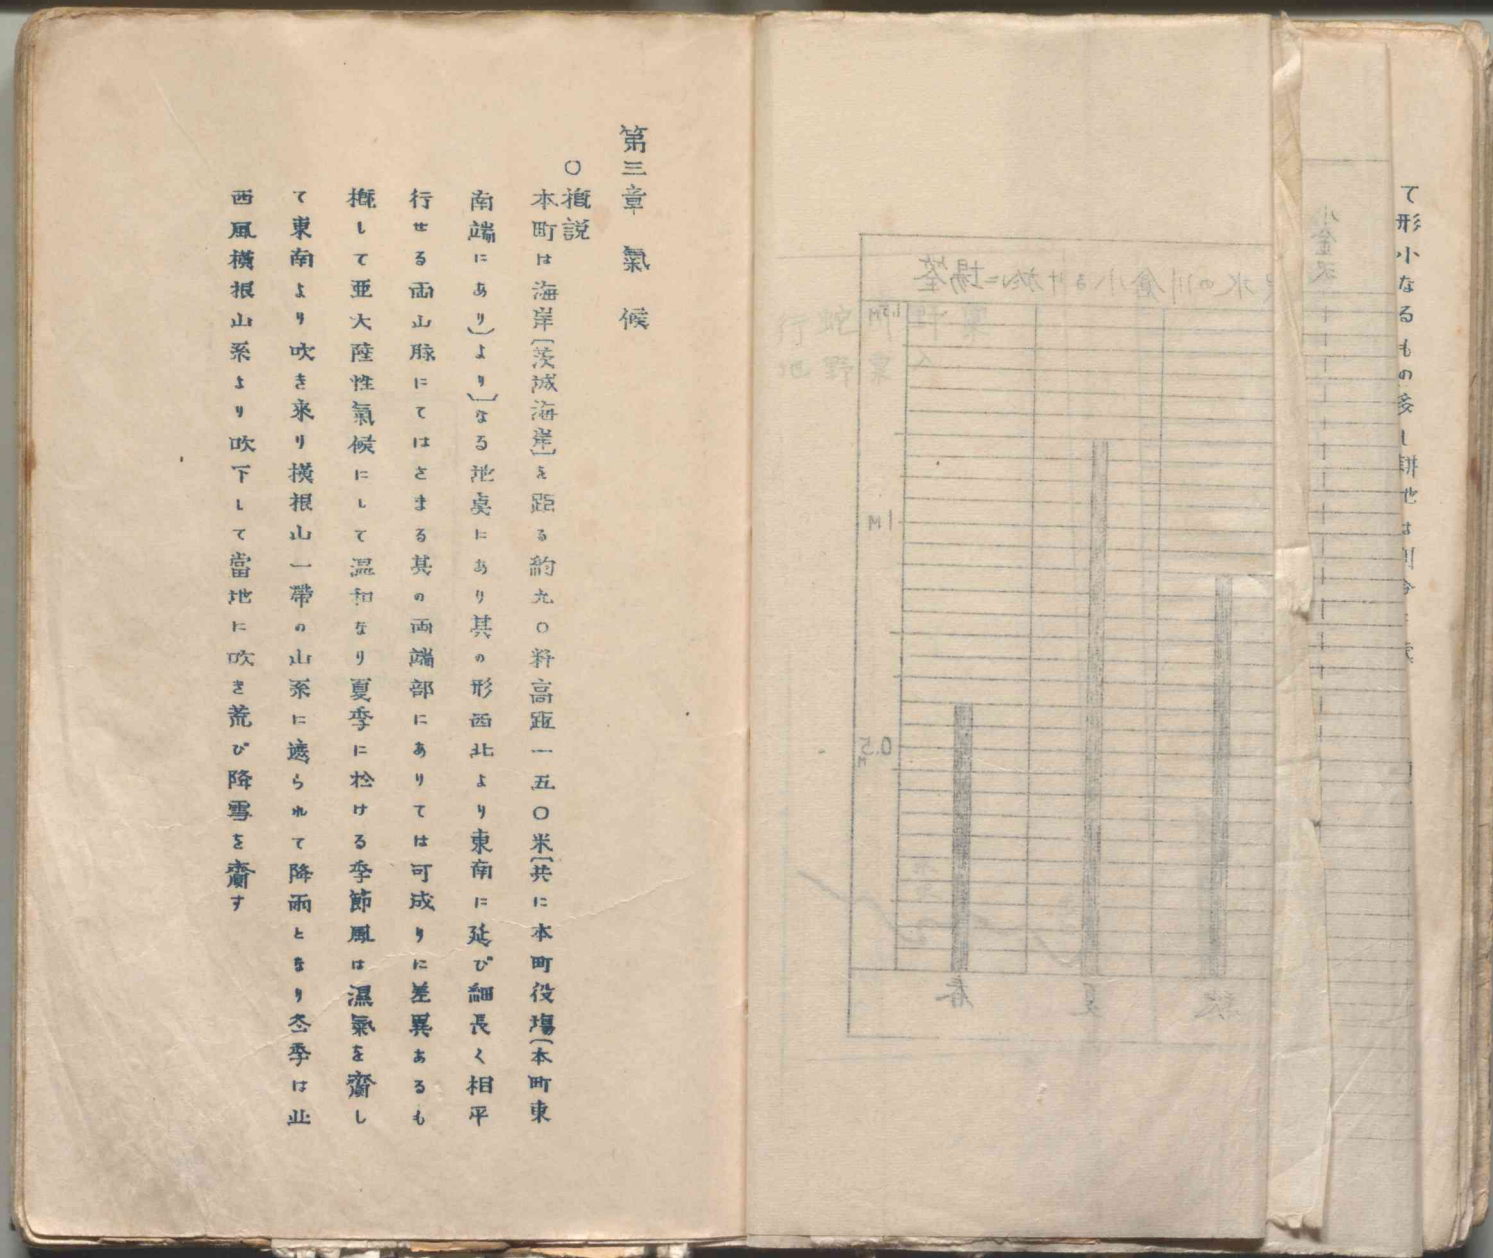 て形小なるもの多し耕地は
小金沢
水の川倉小るけ於に場釜
1.5M
1M
0.5M
春
夏
秋
第三章 氣候
○概説
本町は海岸〔茨城海岸〕を距る約九〇粁高距一五〇米〔共に本町役場(本町東
南端にあり)より〕なる地奌にあり其の形西北より東南に延び細長く相平
行せる両山脉にてはさまる其の両端部にありては可成りに差異あるも
概して亜大陸性氣候にして温和なり夏季に於ける季節風は濕氣を齎し
て東南より吹き来り横根山一帶の山系に遮られて降雨となり冬季は北
西風横根山系より吹下して當地に吹き荒び降雪を齎す